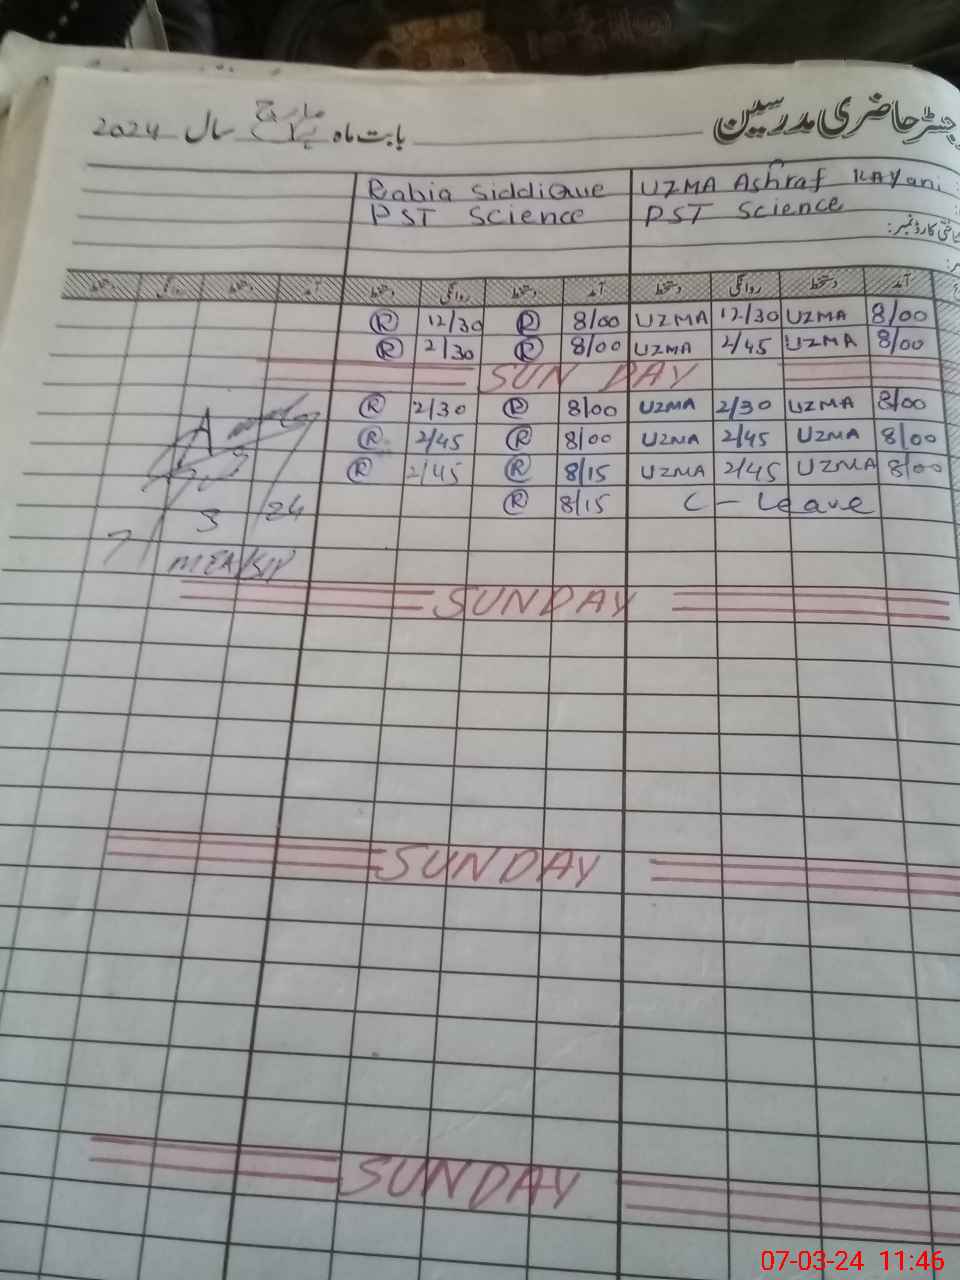 رجسٹر حاضری مدرسین بابت ماہ مارچ سال 2024
Rabia Siddique UZMA Ashraf KAYani
PST Science PST Science
دستخط روانگی دستخط آمد دستخط روانگی دستخط آمد دستخط روانگی دستخط آمد
R 12/30 R 8/00 UZMA 12/30 UZMA 8/00
R 2/30 R 8/00 UZMA 2/45 UZMA 8/00
SUNDAY
R 2/30 R 8/00 UZMA 2/30 UZMA 8/00
R 2/45 R 8/00 UZMA 2/45 UZMA 8/00
R 2/45 R 8/15 UZMA 2/45 UZMA 8/00
R 8/15 C - Leave
7 3 24
SUNDAY
SUNDAY
SUNDAY
07-03-24 11:46